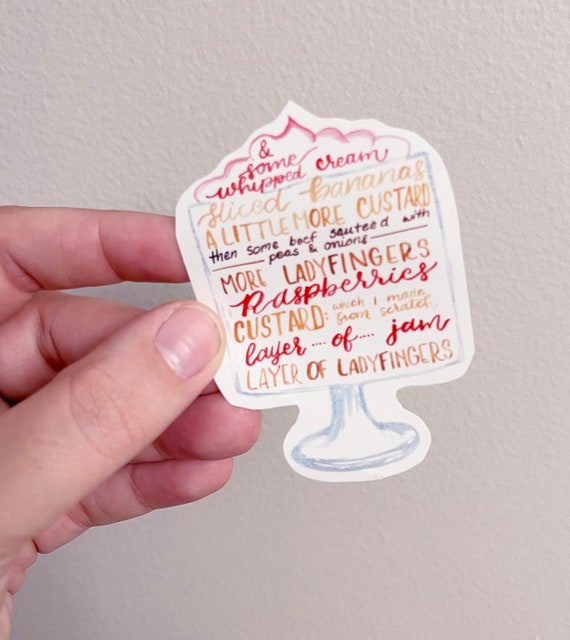 &
some
whipped cream
sliced bananas
A LITTLE MORE CUSTARD
then some beef sauteed with
peas & onions
MORE LADYFINGERS
Raspberries
CUSTARD: which I made
from scratch
layer .... of .... jam
LAYER OF LADYFINGERS